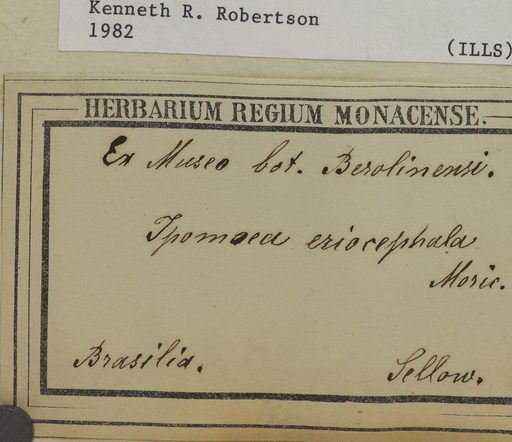 Kenneth R. Robertson
1982
(ILLS)
HERBARIUM REGIUM MONACENSE.
Ex Museo bot. Berolinensi.
Ipomaea eriocephala
Moric.
Brasilia.
Sellow.